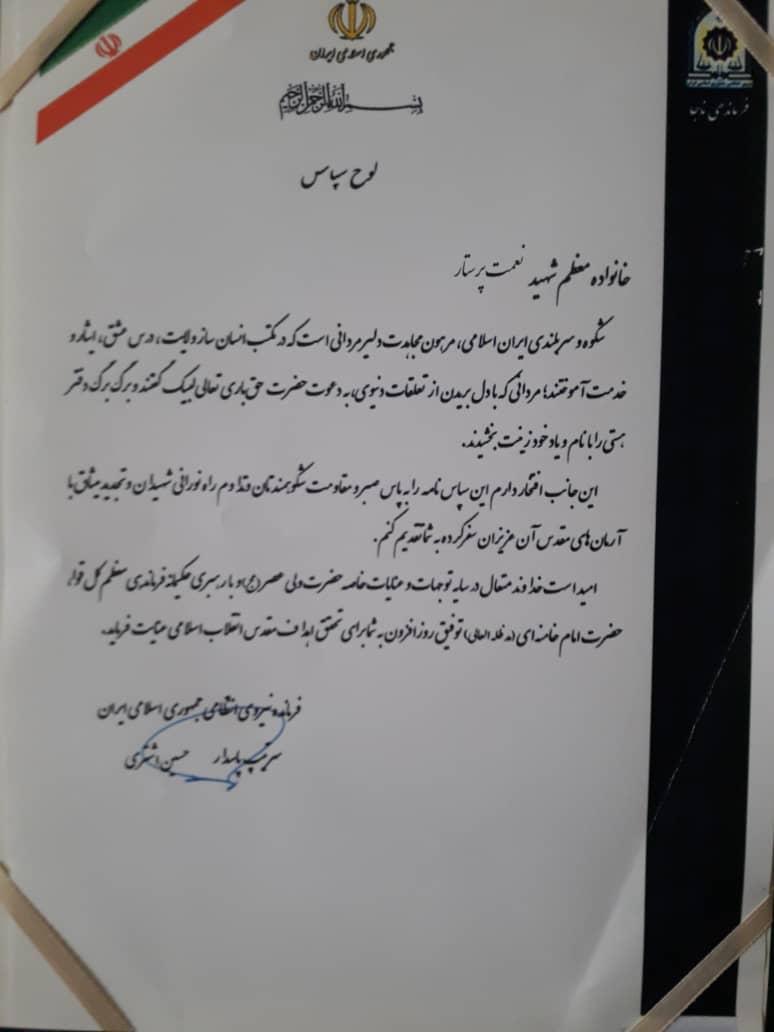 جمهوری اسلامی ایران
بسم الله الرحمن الرحیم
فرماندهی ناجا
لوح سپاس
خانواده معظم شهید نعمت پرستار
شکوه و سربلندی ایران اسلامی، مرهون مجاهدت دلیرمردانی است که در مکتب انسان ساز ولایت، درس عشق، ایثار و
خدمت آموختند؛ مردانی که با دل بریدن از تعلقات دنیوی، به دعوت حضرت حق باری تعالی لبیک گفتند و برگ برگ دفتر
هستی را با نام و یاد خود زینت بخشیدند.
این جانب افتخار دارم این سپاس نامه را به پاس صبر و مقاومت شکوهمندتان و تداوم راه نورانی شهیدان و تجدید میثاق با
آرمان های مقدس آن عزیزان سفرکرده به شما تقدیم کنم.
امید است خداوند متعال در سایه توجهات و عنایات خاصه حضرت ولی عصر (عج) و با رهبری حکیمانه فرماندهی معظم کل قوا،
حضرت امام خامنه ای (مد ظله العالی) توفیق روزافزون به شما برای تحقق اهداف مقدس انقلاب اسلامی عنایت فرماید.
فرمانده نیروی انتظامی جمهوری اسلامی ایران
سرتیپ پاسدار حسین اشتری